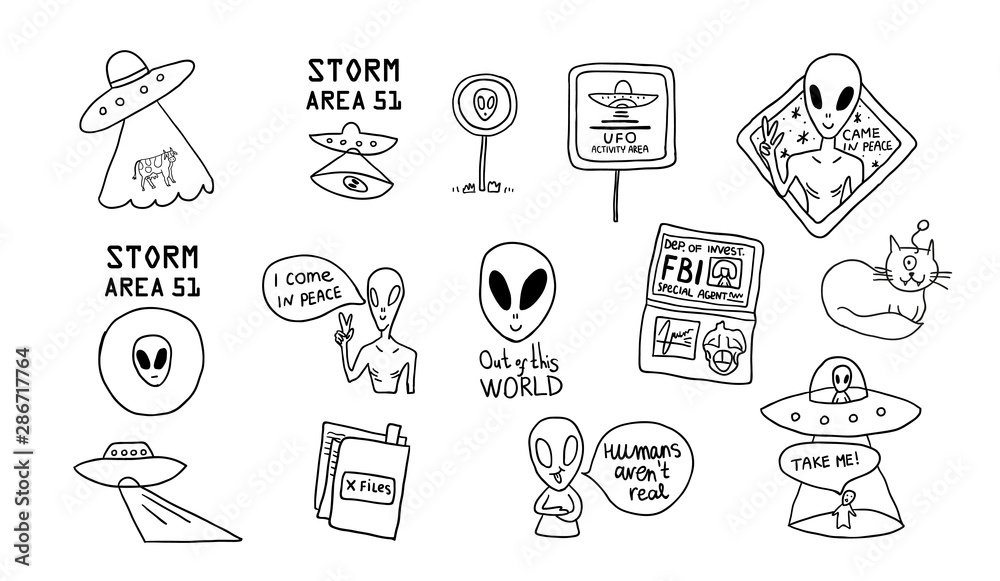 STORM
AREA 51
UFO
ACTIVITY AREA
CAME
IN PEACE
STORM
AREA 51
I COME
IN PEACE
Out of this
WORLD
DEP. OF INVEST.
FBI
SPECIAL AGENT
X FILES
Humans
aren't
real
TAKE ME!
Adobe Stock | #286717764